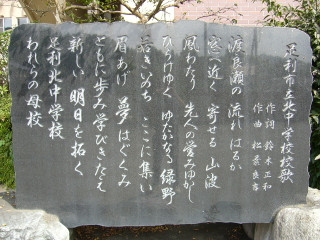 足利市立北中学校校歌
作詞 鈴木正和
作曲 松葉良吉
渡良瀬の 流れ はるか
窓へ近く 寄せる 山波
風わたり 先人の愛みゆかし
ひらけゆく ゆたかなる 緑野
若きいのち ここに集い
眉あげ 夢 はぐくみ
ともに歩み 学びきたえ
新しい 明日を 拓く
足利北中学校
われらの 母校